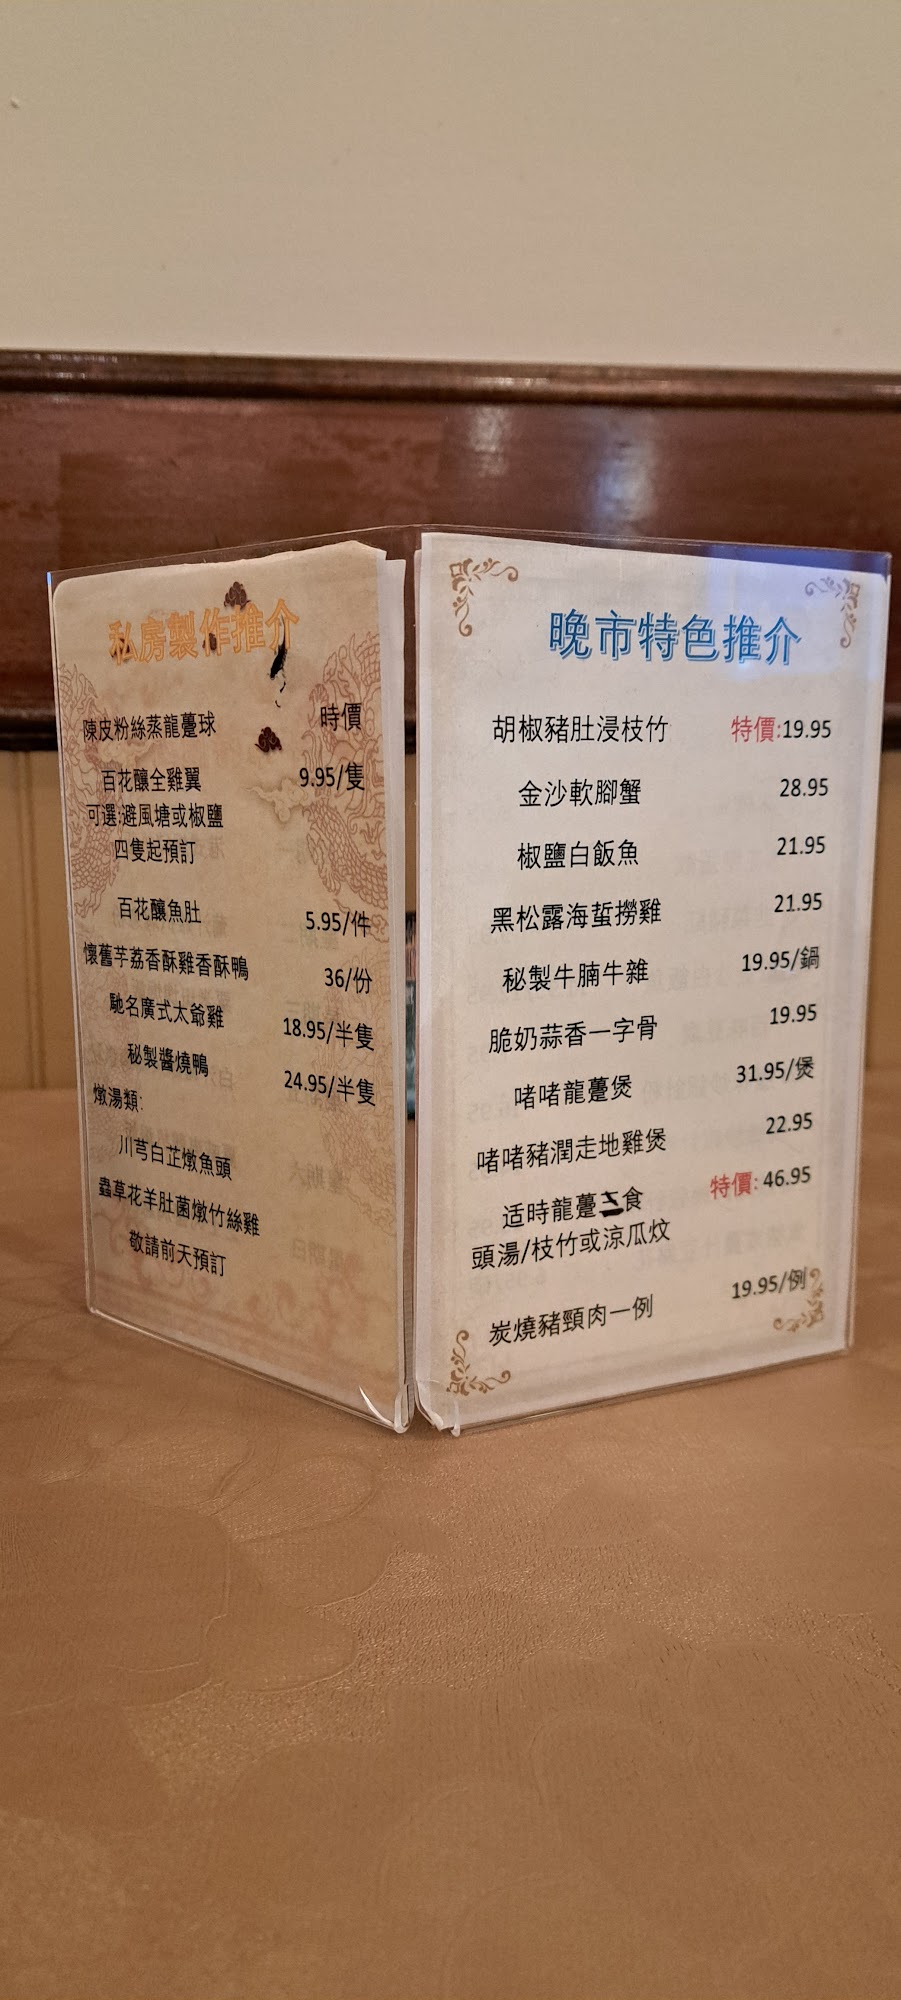 私房製作推介
陳皮粉絲蒸龍躉球 時價
百花釀全雞翼 9.95/隻
可選:避風塘或椒鹽
四隻起預訂
百花釀魚肚 5.95/件
懷舊芋荔香酥雞香酥鴨 36/份
馳名廣式太爺雞 18.95/半隻
秘製醬燒鴨 24.95/半隻
燉湯類:
川芎白芷燉魚頭
蟲草花羊肚菌燉竹絲雞
敬請前天預訂
晚市特色推介
胡椒豬肚浸枝竹 特價:19.95
金沙軟腳蟹 28.95
椒鹽白飯魚 21.95
黑松露海蜇撈雞 21.95
秘製牛腩牛雜 19.95/鍋
脆奶蒜香一字骨 19.95
啫啫龍躉煲 31.95/煲
啫啫豬潤走地雞煲 22.95
适時龍躉二食 特價: 46.95
頭湯/枝竹或涼瓜炆
炭燒豬頸肉一例 19.95/例